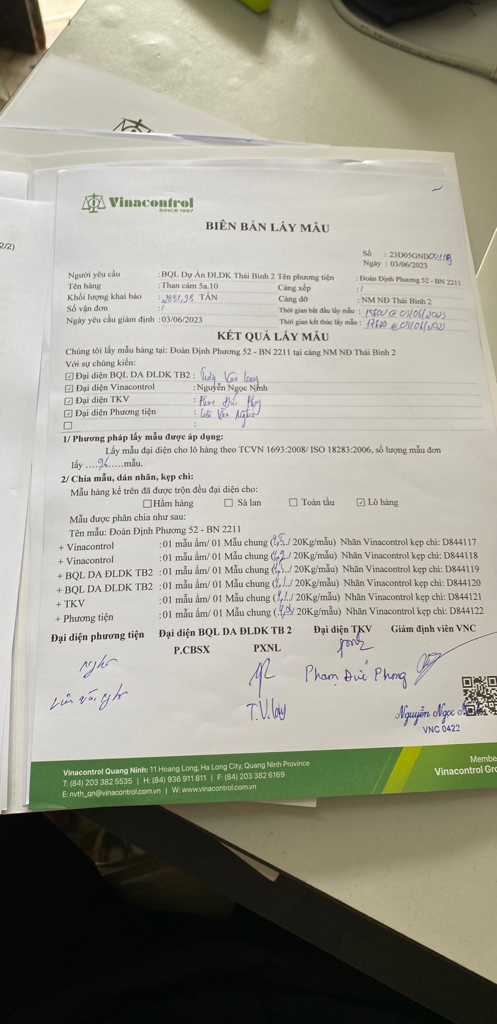 2/2)
Vinacontrol
SINCE 1957
BIÊN BẢN LẤY MẪU
Số : 23D05GND
Ngày : 03/06/2023
Người yêu cầu : BQL Dự Án ĐLDK Thái Bình 2 Tên phương tiện : Đoàn Định Phương 52 - BN 2211
Tên hàng : Than cám 5a.10 Cảng xếp : /
Khối lượng khai báo : 2881,98 TẤN Cảng dỡ : NM NĐ Thái Bình 2
Số vận đơn : / Thời gian bắt đầu lấy mẫu : 15h00 @ 03/06/2023
Ngày yêu cầu giám định : 03/06/2023 Thời gian kết thúc lấy mẫu : 17h00 @ 03/06/2023
KẾT QUẢ LẤY MẪU
Chúng tôi lấy mẫu hàng tại: Đoàn Định Phương 52 - BN 2211 tại cảng NM NĐ Thái Bình 2
Với sự chứng kiến:
Đại diện BQL DA ĐLDK TB2 :
Đại diện Vinacontrol : Nguyễn Ngọc Ninh
Đại diện TKV : Phạm Đức Phong
Đại diện Phương tiện :
:
1/ Phương pháp lấy mẫu được áp dụng:
Lấy mẫu đại diện cho lô hàng theo TCVN 1693:2008/ ISO 18283:2006, số lượng mẫu đơn
lấy ....96.....mẫu.
2/ Chia mẫu, dán nhãn, kẹp chì:
Mẫu hàng kể trên đã được trộn đều đại diện cho:
Hầm hàng Sà lan Toàn tầu Lô hàng
Mẫu được phân chia như sau:
Tên mẫu: Đoàn Định Phương 52 - BN 2211
+ Vinacontrol : 01 mẫu ẩm/ 01 Mẫu chung ( / 20Kg/mẫu) Nhãn Vinacontrol kẹp chì: D844117
+ Vinacontrol : 01 mẫu ẩm/ 01 Mẫu chung ( / 20Kg/mẫu) Nhãn Vinacontrol kẹp chì: D844118
+ BQL DA ĐLDK TB2 : 01 mẫu ẩm/ 01 Mẫu chung ( / 20Kg/mẫu) Nhãn Vinacontrol kẹp chì: D844119
+ BQL DA ĐLDK TB2 : 01 mẫu ẩm/ 01 Mẫu chung ( / 20Kg/mẫu) Nhãn Vinacontrol kẹp chì: D844120
+ TKV : 01 mẫu ẩm/ 01 Mẫu chung ( / 20Kg/mẫu) Nhãn Vinacontrol kẹp chì: D844121
+ Phương tiện : 01 mẫu ẩm/ 01 Mẫu chung ( / 20Kg/mẫu) Nhãn Vinacontrol kẹp chì: D844122
Đại diện phương tiện Đại diện BQL DA ĐLDK TB 2 Đại diện TKV Giám định viên VNC
P.CBSX PXNL
Phạm Đức Phong
T.V.long
Nguyễn Ngọc
VNC 0422
Vinacontrol Quang Ninh: 11 Hoang Long, Ha Long City, Quang Ninh Province
T: (84) 203 382 5535 | H: (84) 936 911 811 | F: (84) 203 382 6169
E: nvth_qn@vinacontrol.com.vn | W: www.vinacontrol.com.vn
Membe
Vinacontrol Gro